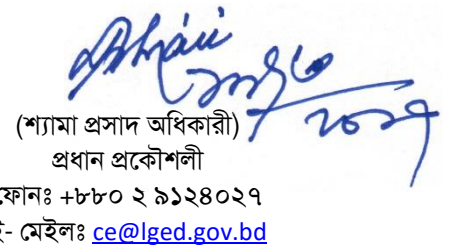 (শ্যামা প্রসাদ অধিকারী)
প্রধান প্রকৌশলী
ফোনঃ +৮৮০ ২ ৯১২৪০২৭
ই- মেইলঃ ce@lged.gov.bd